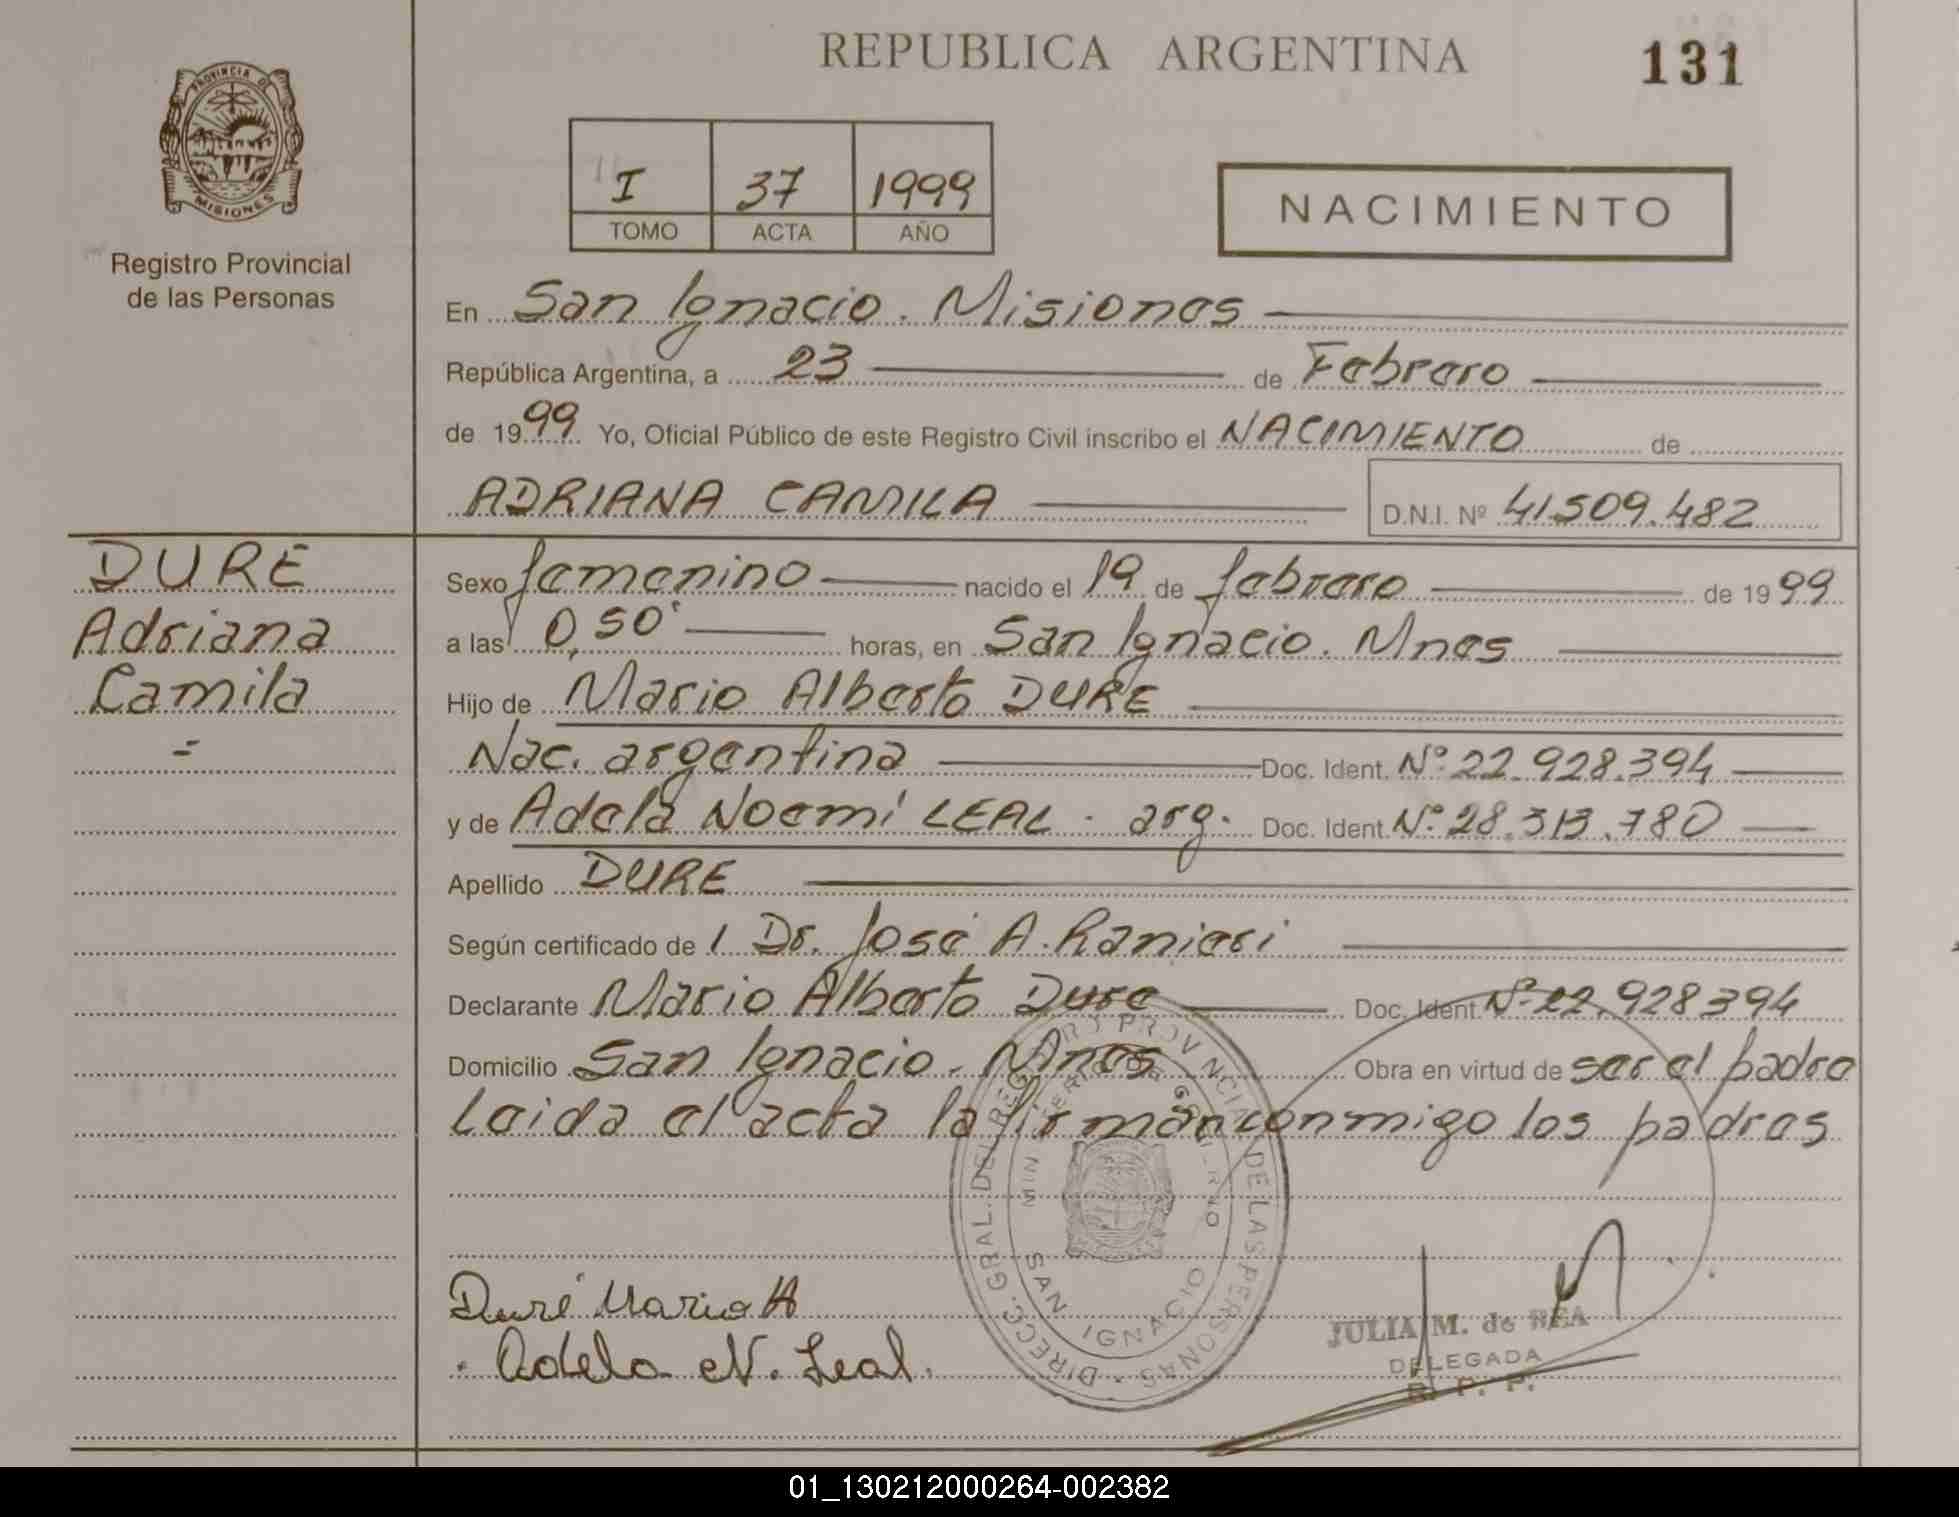 REPUBLICA ARGENTINA
131
PROVINCIA DE
MISIONES
Registro Provincial
de las Personas
I 37 1999
TOMO ACTA AÑO
NACIMIENTO
En San Ignacio. Misiones
República Argentina, a 23 de Febrero
de 1999 Yo, Oficial Público de este Registro Civil inscribo el NACIMIENTO de
ADRIANA CAMILA D.N.I. Nº 41.509.482
DURE
Adriana
Camila
=
Sexo femenino nacido el 19 de febrero de 1999
a las 0,50' horas, en San Ignacio. Mnes
Hijo de Mario Alberto DURE
Nac. argentina Doc. Ident. Nº 22.928.394
y de Adela Noemi LEAL - arg. Doc. Ident. Nº 28.313.780
Apellido DURE
Según certificado de / Dr. José A. Ranieri
Declarante Mario Alberto Dure Doc. Ident. Nº 22.928394
Domicilio San Ignacio. Mnes Obra en virtud de ser el padre
Leida el acta la firman conmigo los padres
DIRECC. GRAL. DEL REGISTRO PROVINCIAL DE LAS PERSONAS
MINISTERIO DE GOBIERNO
SAN IGNACIO
Duré Mario A
Adela N. Leal.
JULIA M. de REA
DELEGADA
R. P. P.
01_130212000264-002382